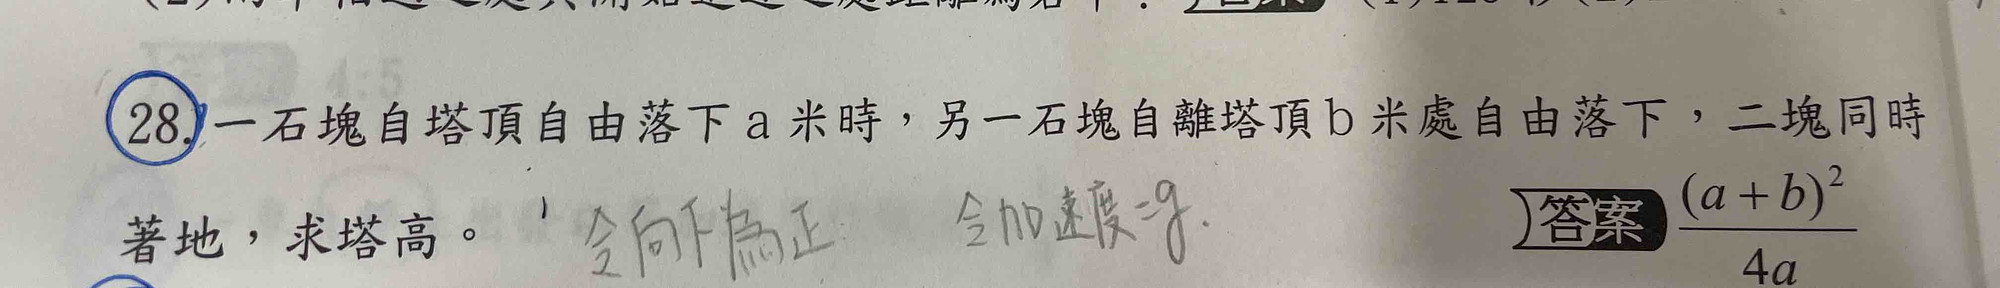 28. 一石塊自塔頂自由落下a米時，另一石塊自離塔頂b米處自由落下，二塊同時
著地，求塔高。
令向下為正 令加速度=g.
答案 (a+b)²/4a